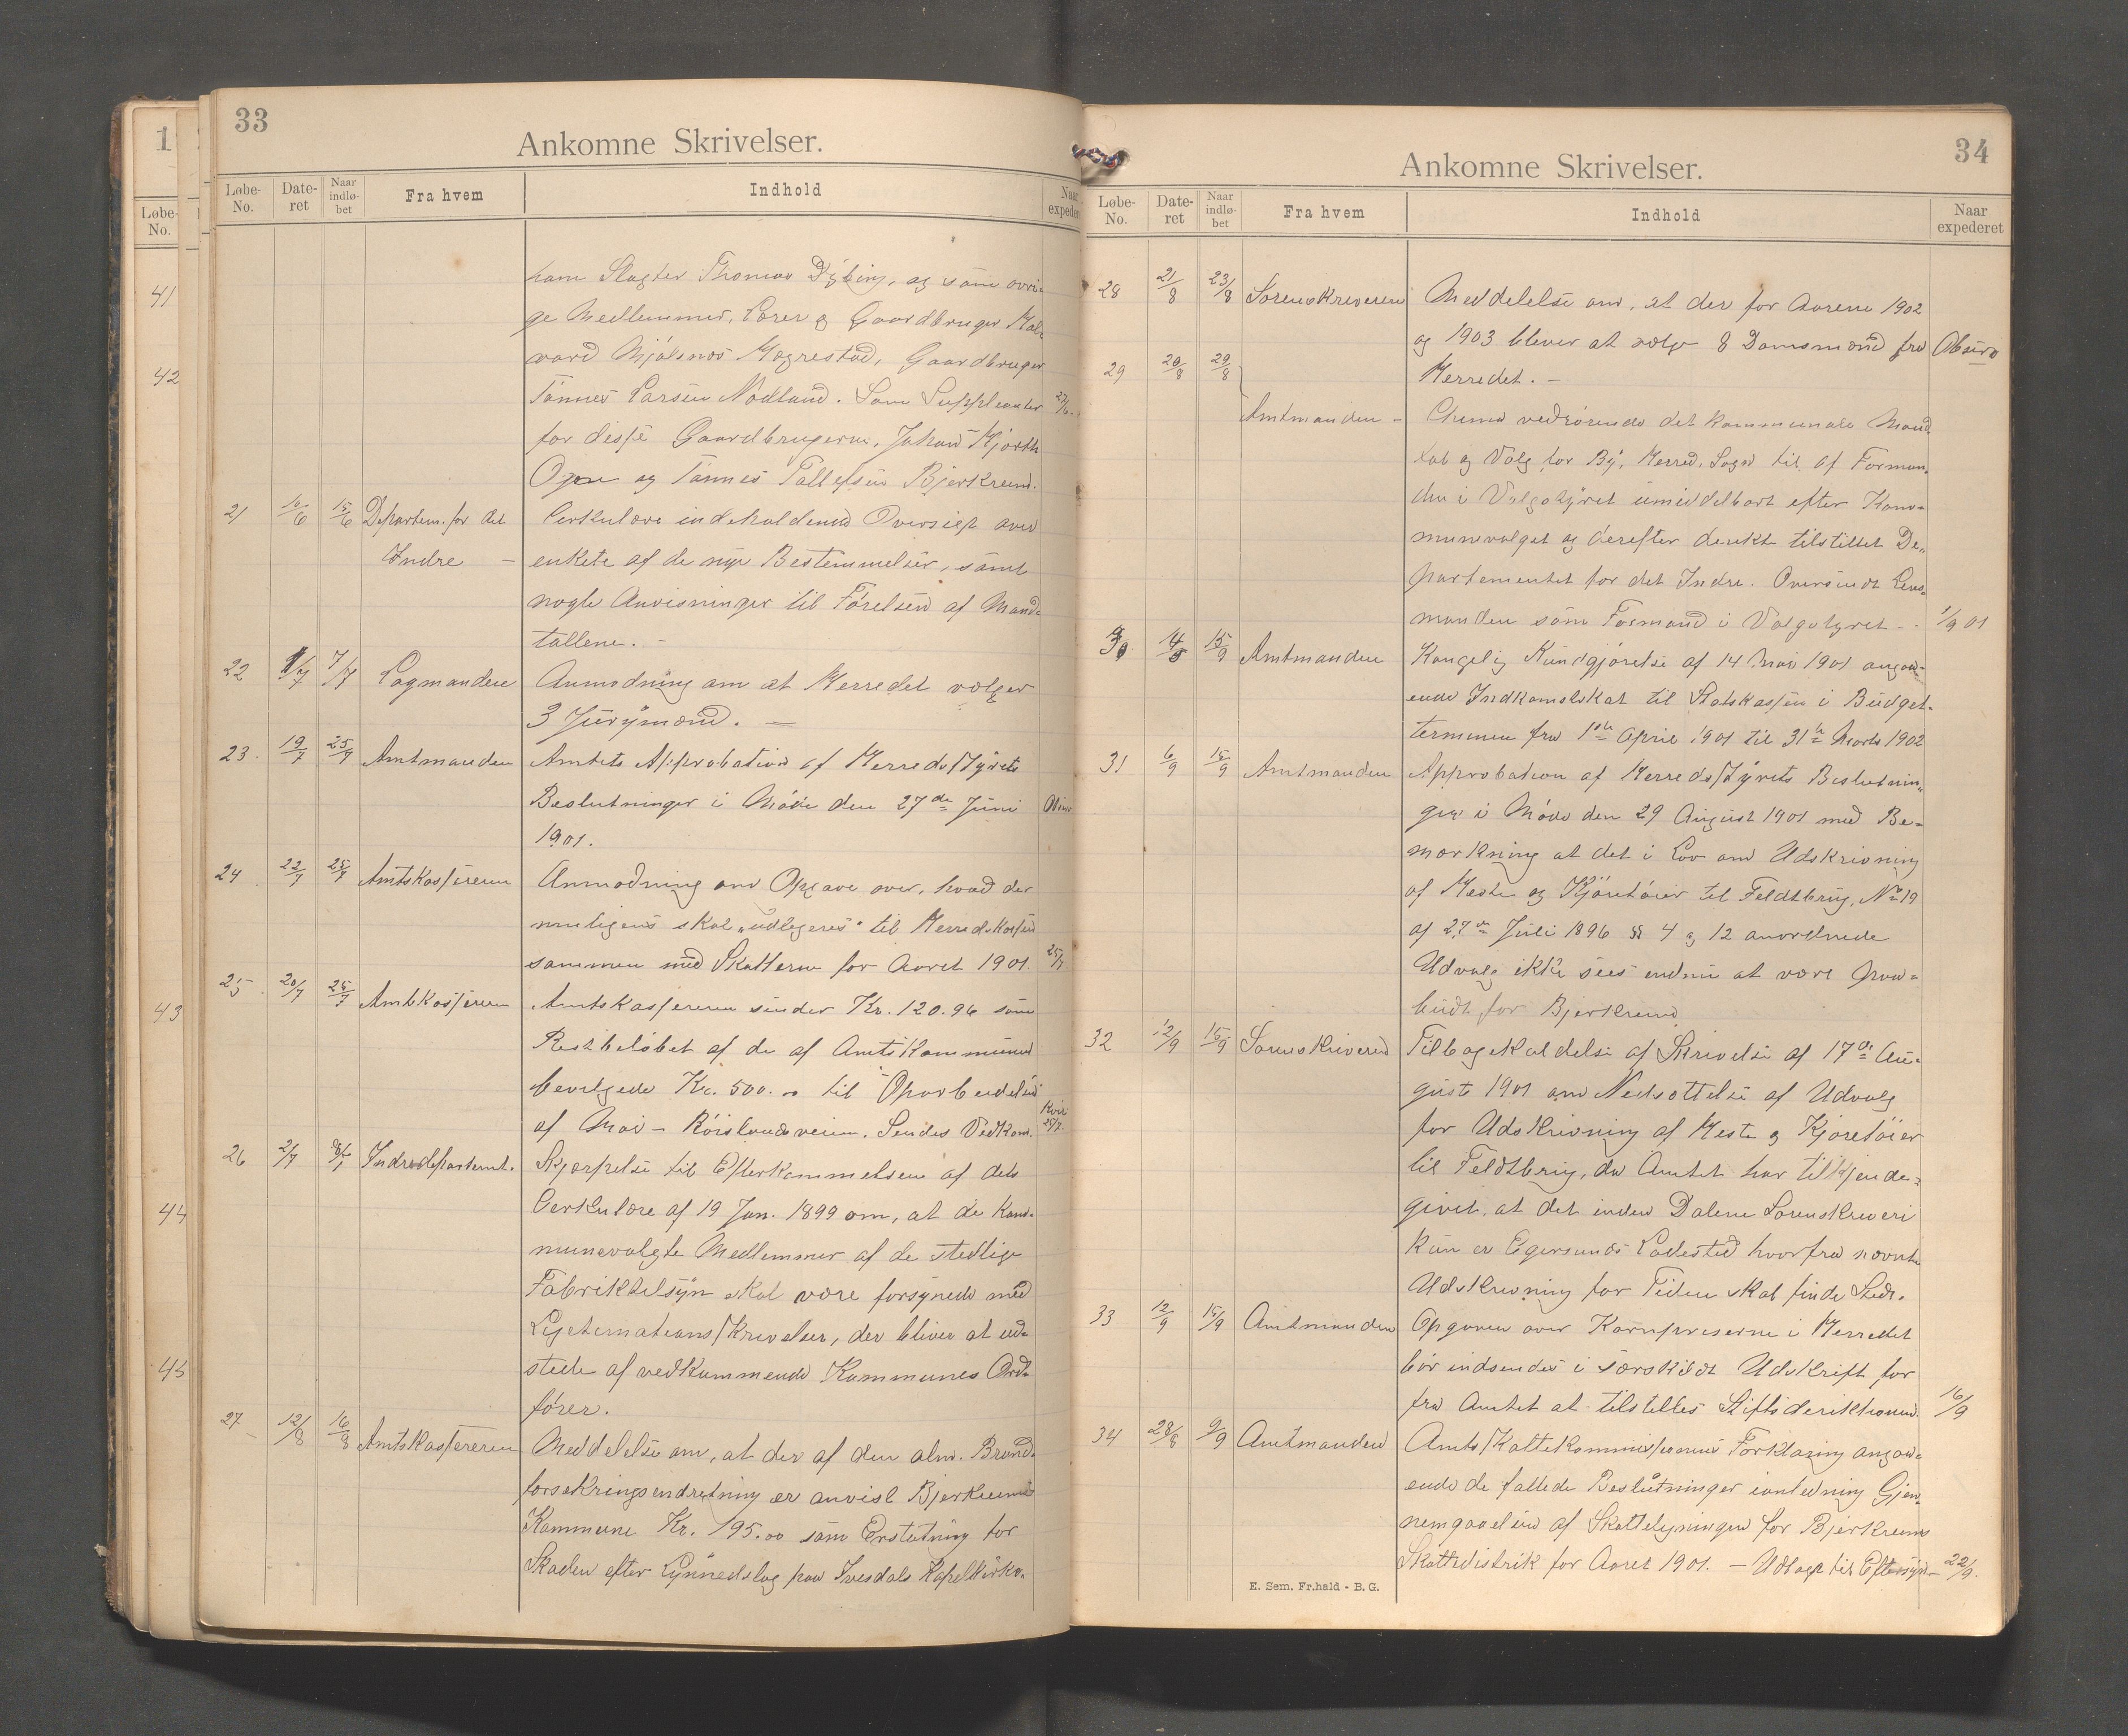 33
Ankomne Skrivelser.
Løbe-No. Date-ret Naar indlø-bet Fra hvem Indhold Naar expederet
ham Slagter Thomas Dybing, og som øvri-
ge Medlemmer, Lærer og Gaardbruger Hal-
vard Mjølsnes Hægrestad, Gaardbruger
Tønnes Larsen Nødland. Som Suppleanter
for disse Gaardbrugerne, Johan Kjørth
og Tønnes Tollefsen Bjerkreim.
21 10/6 15/6 Departem. for det Cirkulære indeholdende Oversigt over
Indre – enkete af de nye Bestemmelser, samt
nogle Anvisninger til Førelsen af Mand-
tallene. –
22 1/7 7/7 Lagmanden Anmodning om at Herredet vælger
3 Jurymænd. —
23. 19/7 25/7 Amtmanden Amtets Approbation af Herredsstyrets
Beslutninger i Møde den 27de Juni
1901.
24. 22/7 25/7 Amtskassereren Anmodning om Opgave over, hvad der
muligens skal „udlignes" til Herredskassen
sammen med Skatterne for Aaret 1901. 25/7
25. 20/7 25/7 Amtskassereren Amtskassereren sender Kr. 120.96 som
Restbeløbet af de af Amtskommunen
bevilgede Kr. 500.00 til Oparbeidelse
af Moi – Røislandsveien. Sendes Vedkom.
26 2/7 Indredepartemt. Skjærpelse til Efterkommelsen af dets
Cirkulære af 19 Jan. 1899 om, at de kom-
munevalgte Medlemmer af de stedlige
Fabriktilsyn skal være forsynede med
Legitimationsskrivelser, der bliver at ud-
stede af vedkommende Kommunes Ord-
fører.
27 12/8 16/8 Amtskassereren Meddelelse om, at der af den alm. Brand-
forsikringsindretning er anvist Bjerkreims
Kommune Kr. 195.00 som Erstatning for
Skaden efter Lynnedslag paa Ivesdals Kapelkirke.
34
Ankomne Skrivelser.
Løbe-No. Date-ret Naar indlø-bet Fra hvem Indhold Naar expederet
28 21/8 23/8 Sorenskriveren Meddelelse om, at der for Aarene 1902
og 1903 bliver at vælge 8 Domsmænd fra
29 20/8 29/8 Herredet. –
Amtmanden – Skema vedrørende det kommunale Mand-
tal og Valg for By, Herred, Sogn til af Forman-
den i Valgstyret umiddelbart efter Kom-
munevalget og derefter direkte tilstillet De-
partementet for det Indre. Oversendt Lens-
manden som Formand i Valgstyret – 1/9 01
30. 14/5 15/9 Amtmanden Kongelig Kundgjørelse af 14 Mai 1901 angaa-
ende Indkomstskat til Statskassen i Budget-
terminen fra 1ste April 1901 til 31te Marts 1902
31 6/9 15/9 Amtmanden Approbation af Herredsstyrets Beslutnin-
ger i Møde den 29 August 1901 med Be-
mærkning at det i Lov om Udskrivning
af Heste og Kjøretøier til Feldtbrug, No 19
af 27de Juli 1896 §§ 4 og 12 anordnede
Udvalg ikke sees endnu at være paa-
budt for Bjerkreim
32 12/9 15/9 Sorenskriveren Tilbagekaldelse af Skrivelse af 17de Au-
gust 1901 om Nedsættelse af Udvalg
for Udskrivning af Heste og Kjøretøier
til Feldtbrug, da Amtet har tilkjende-
givet, at det inden Dalene Sorenskriveri
kun er Egersunds Ladested hvorfra nævnte
Udskrivning for Tiden skal finde Sted.
33 12/9 15/9 Amtmanden Opgaven over Kornpriserne i Herredet
bør indsendes i særskildt Udskrift for
fra Amtet at tilstilles Stiftsdirektionen. 16/9
34 28/8 9/9 Amtmanden Amtsskattekommissionens Forklaring angaa-
ende de fattede Beslutninger i anledning Gjen-
nemgaaelsen af Skatteligningen for Bjerkreims
Skattedistrik for Aaret 1901. – Udlagt til Eftersyn – 22/9.
E. Sem. Fr.hald - B.G.
1
Løbe-No.
41
42
43
44
45